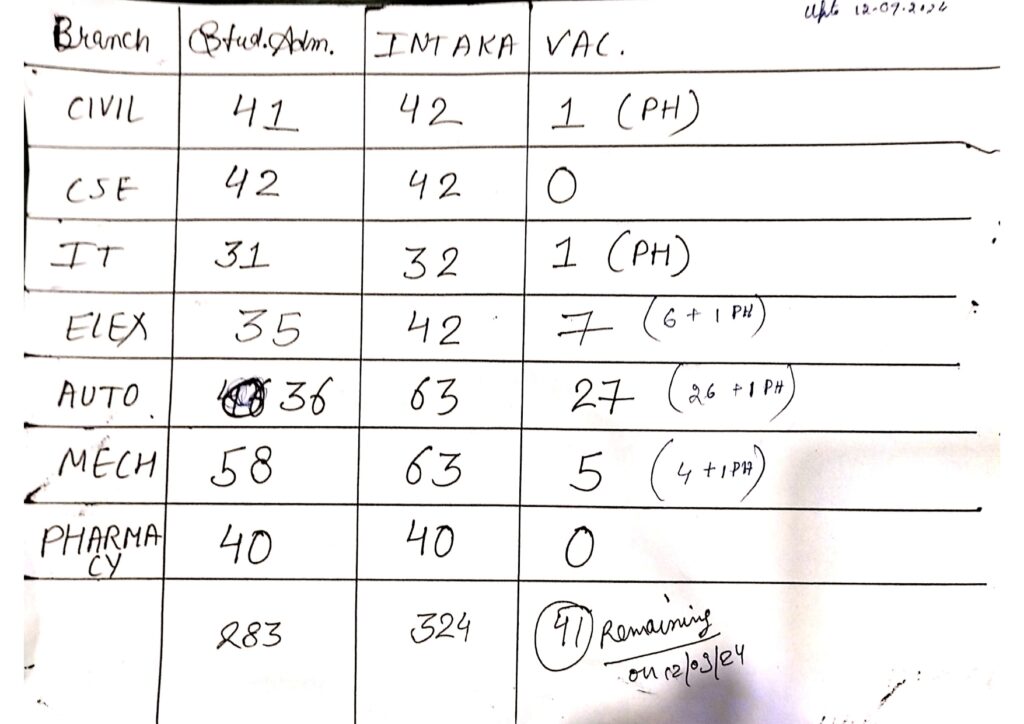 Upto 12-09-2024
Branch Stud.Adm. INTAKA VAC.
CIVIL 41 42 1 (PH)
CSE 42 42 0
IT 31 32 1 (PH)
ELEX 35 42 7 (6 + 1 PH)
AUTO. 36 63 27 (26 + 1 PH)
MECH 58 63 5 (4 + 1 PH)
PHARMA 40 40 0
CY
283 324 41 Remaining
on 12/09/24